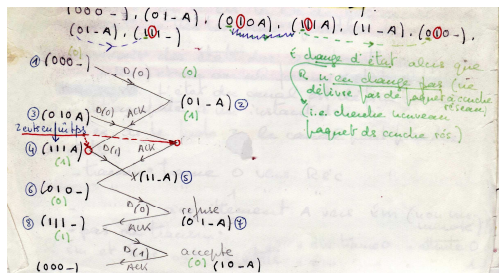 (000-), (01-A), (010A), (111A), (11-A), (010-)
(01-A), (111-)
E change d'état alors que
R n'en change pas (ne
délivre pas de paquet à couche
réseau)
(i.e. cherche nouveau
paquet ds couche rés)
① (000-) D(0) (0)
(01-A) ②
(1)
③ (010A) D(0) ACK
④ (111A) D(1) ACK
(1)
X(11-A) ⑤
⑥ (010-)
(0) D(0) refuse
(111-) ACK (01-A) ⑦
(1) D(1) accepte
(000-) ACK (0) (10-A)